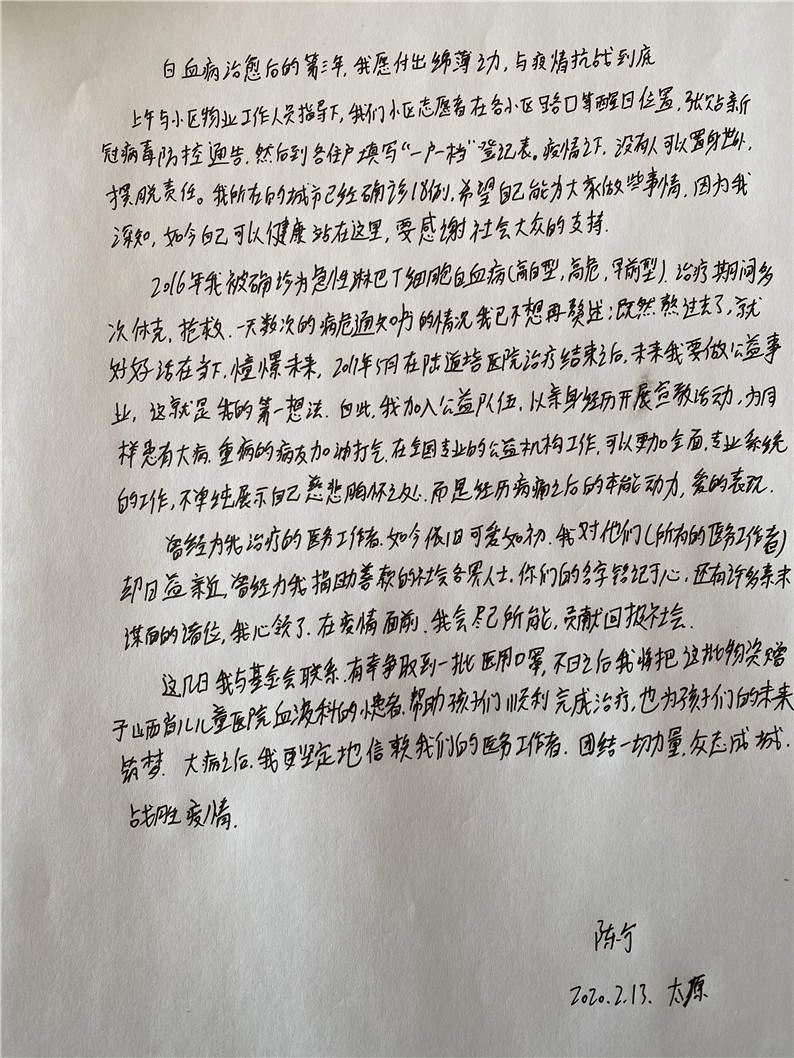 白血病治愈后的第三年,我愿付出绵薄之力,与疫情抗战到底
上午与小区物业工作人员指导下,我们小区志愿者在各小区路口等醒目位置,张贴新
冠病毒防控通告.然后到各住户填写“一户一档”登记表。疫情之下,没有人可以置身世外,
摆脱责任。我所在的城市已经确诊18例,希望自己能为大家做些事情.因为我
深知,如今自己可以健康站在这里,要感谢社会大众的支持.
2016年我被确诊为急性淋巴T细胞白血病(高白型,高危,早前型).治疗期间多
次休克,抢救.一天数次的病危通知书的情况我已不想再赘述;既然熬过去了,就
好好活在当下,憧憬未来,2017年5月在陆道培医院治疗结束之后,未来我要做公益事
业,这就是我的第一想法.因此,我加入公益队伍,以亲身经历开展宣教活动,为同
样患有大病.重病的病友加油打气.在全国专业的公益机构工作,可以更加全面.专业系统
的工作,不单纯展示自己慈悲胸怀之处.而是经历病痛之后的本能动力,爱的表现.
曾经为我治疗的医务工作者.如今依旧可爱如初.我对他们(所有的医务工作者)
却日益亲近,曾经为我捐助善款的社会各界人士.你们的名字铭记于心,还有许多素未
谋面的诸位,我心领了.在疫情面前.我会尽己所能,贡献回报社会.
这几日我与基金会联系.有幸争取到一批医用口罩,不日之后我将把这批物资赠
予山西省儿童医院血液科的小患者.帮助孩子们顺利完成治疗,也为孩子们的未来
筑梦.大病之后.我更坚定地信赖我们的医务工作者.团结一切力量,众志成城.
战胜疫情.
陈宁
2020.2.13.太原